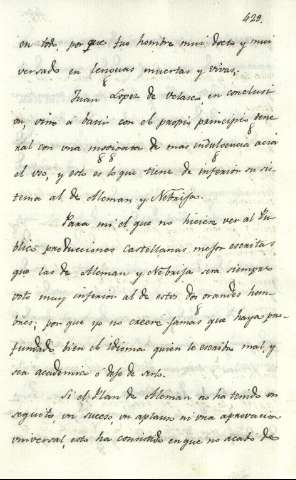 429.
en todo, porque fue hombre mui docto y mui
versado en lenguas muertas y vivas,
Juan Lopez de Velasco, en conclusi-
on, vino a dar con el propio principio gene-
ral con una de mas indulgencia acia
el uso, y esto es lo que tiene de inferior su sis-
tema al de Aleman y Nebrija.
Para mi el que no hiciere ver al Pu-
blico producciones castellanas mejor escritas
que las de Aleman y Nebrija sera siempre
voto muy inferior al de estos dos grandes hom-
bres; por que yo no creere jamas que haya pro-
fundado bien el idioma quien lo escribe mal, y
sea academico o deje de serlo.
Si el Plan de Aleman no ha tenido un
seguito, un suceso, un aplauso ni una aprovacion
universal, esto ha consistido en que no acabó de